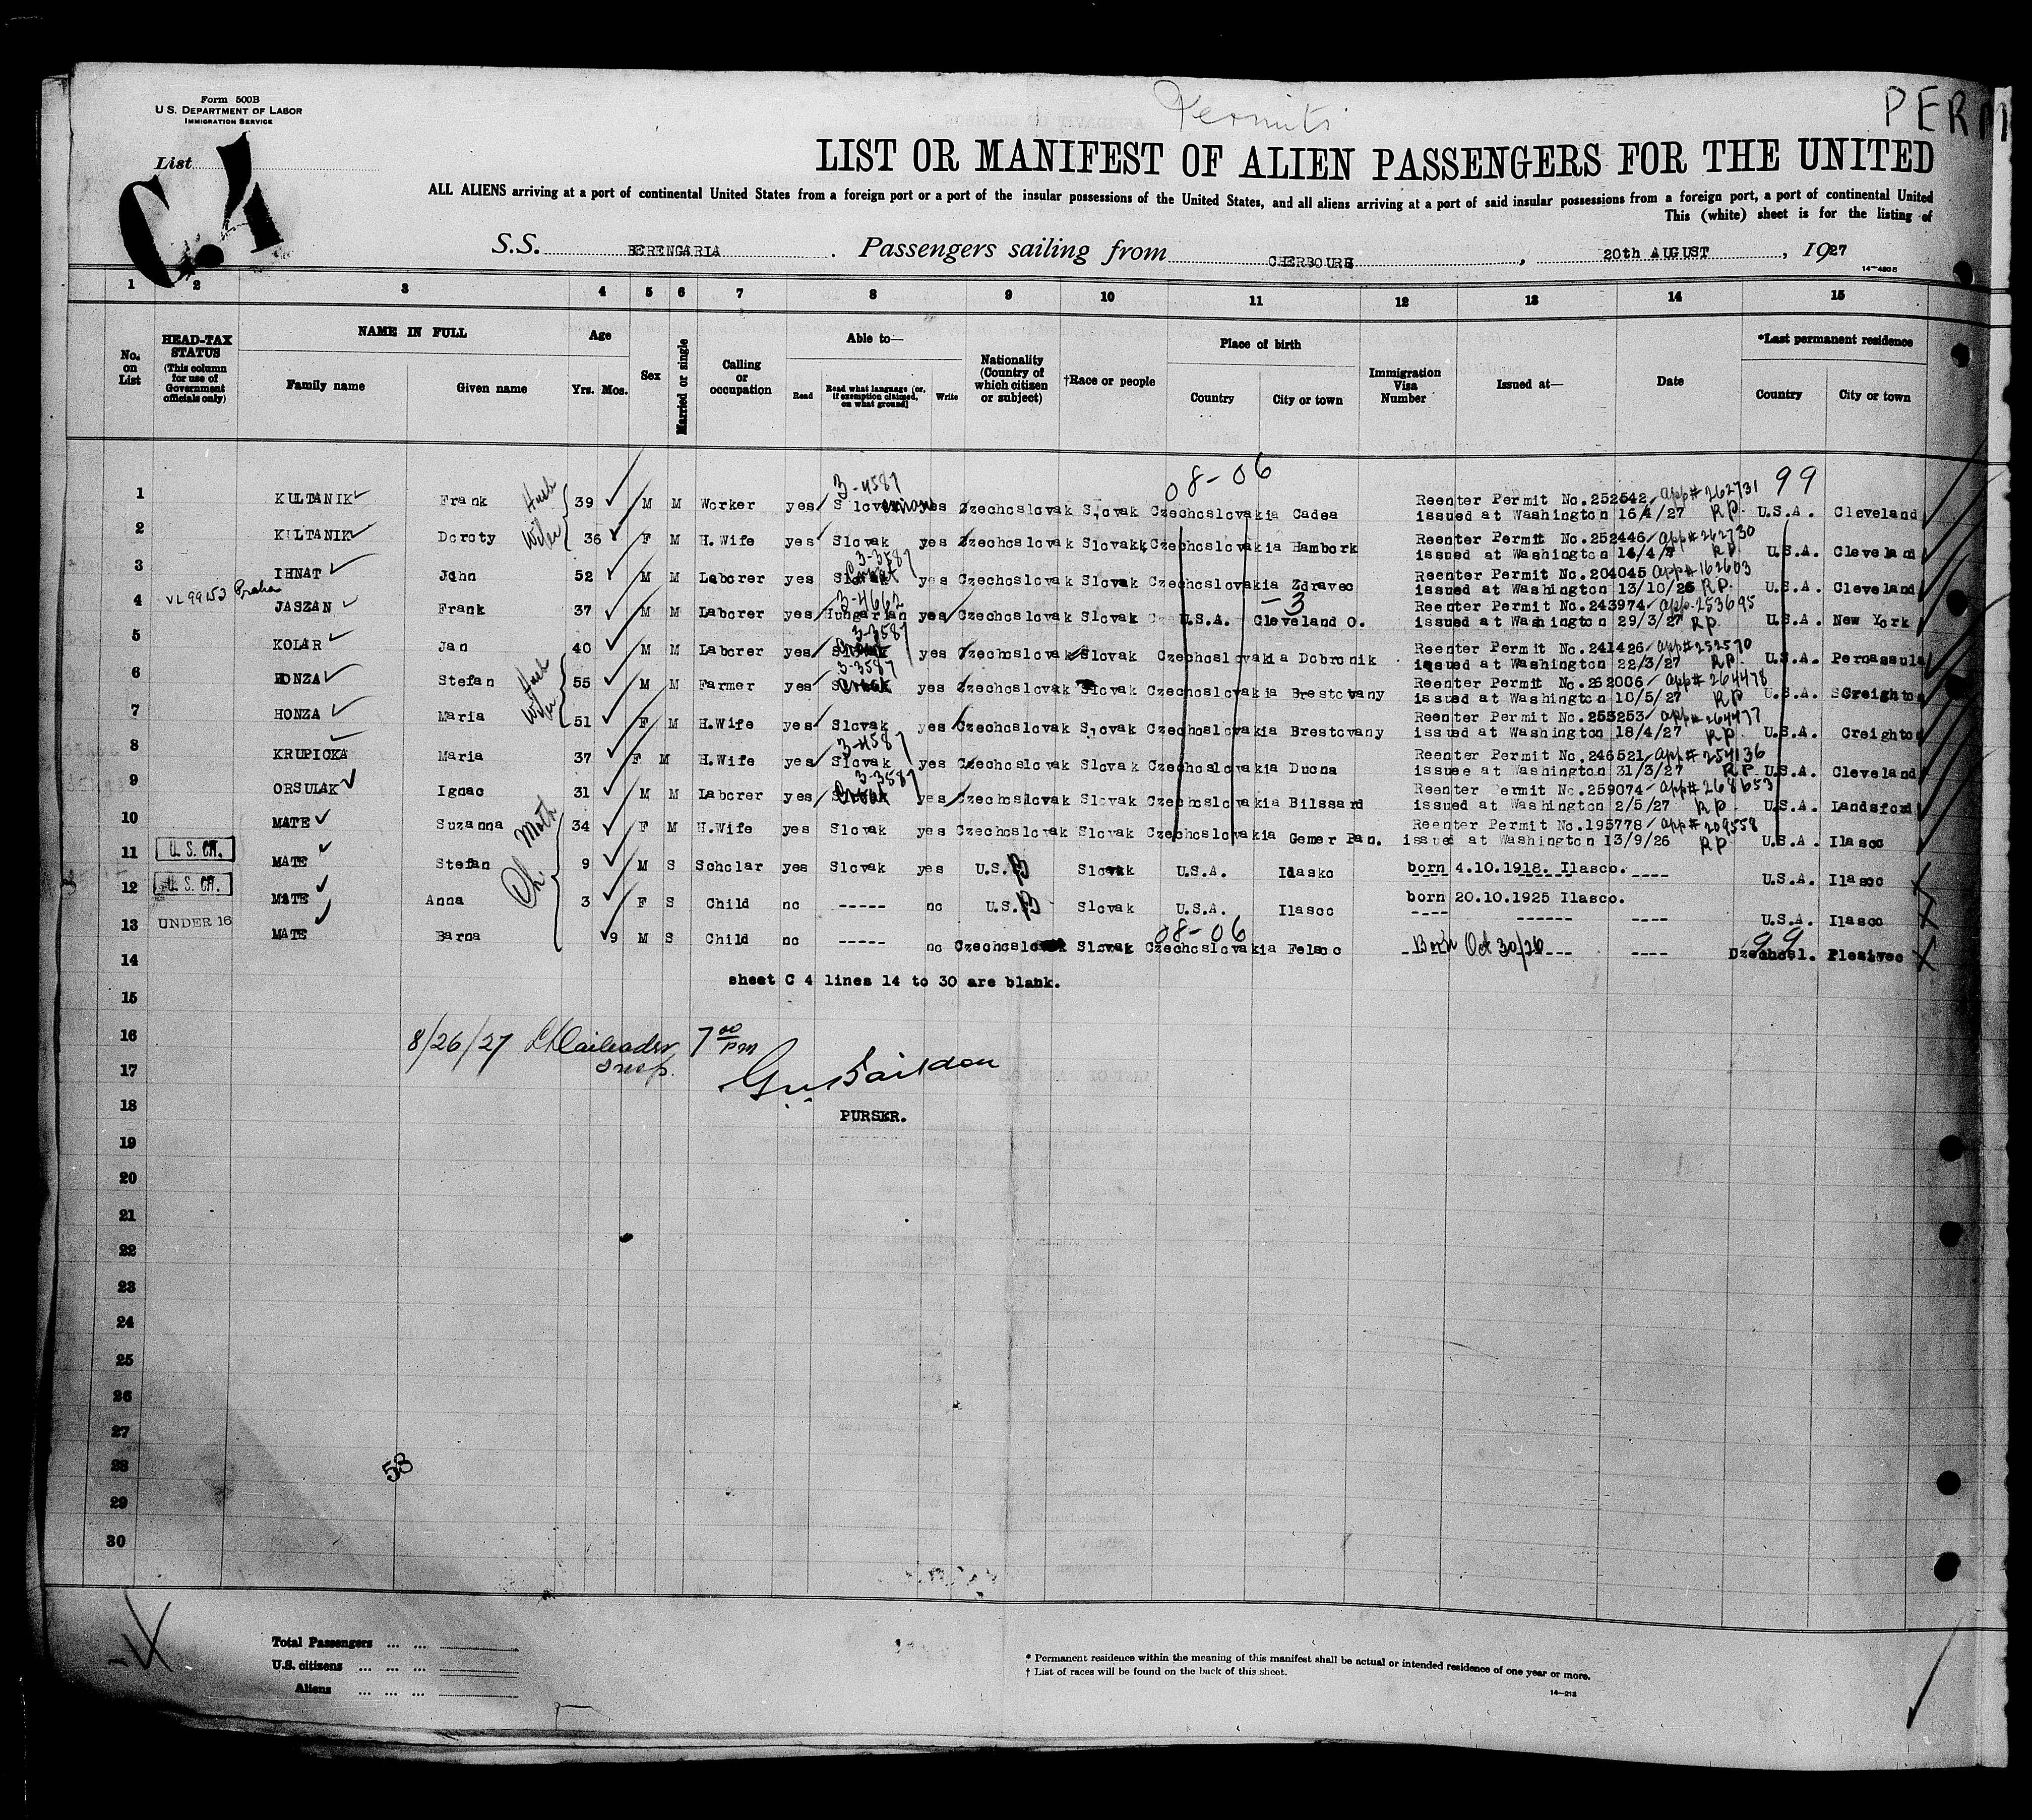 Form 500B
U. S. DEPARTMENT OF LABOR
IMMIGRATION SERVICE
Permits
PERM
List
C.4
LIST OR MANIFEST OF ALIEN PASSENGERS FOR THE UNITED
ALL ALIENS arriving at a port of continental United States from a foreign port or a port of the insular possessions of the United States, and all aliens arriving at a port of said insular possessions from a foreign port, a port of continental United
This (white) sheet is for the listing of
S.S. BERENGARIA. Passengers sailing from CHERBOURG, 20th AUGUST, 1927
14—480B
1 2 3 4 5 6 7 8 9 10 11 12 13 14 15
No. on List
HEAD-TAX STATUS (This column for use of Government officials only)
NAME IN FULL
Family name Given name
Age
Yrs. Mos.
Sex
Married or single
Calling or occupation
Able to—
Read Read what language (or, if exemption claimed, on what ground) Write
Nationality (Country of which citizen or subject)
†Race or people
Place of birth
Country City or town
Immigration Visa Number
Issued at—
Date
*Last permanent residence
Country City or town
3-4587 08-06 99
1 KULTANIK Frank Husb 39 M M Worker yes Slovenian yes Czechoslovak Slovak Czechoslovakia Cadca Reenter Permit No.252542 app# 262731
issued at Washington 16/4/27 RP U.S.A. Cleveland
2 KULTANIK Doroty Wife 36 F M H.Wife yes Slovak yes Czechoslovak Slovakk Czechoslovakia Hambork Reenter Permit No.252446 app# 262730
issued at Washington 14/4/2 RP U.S.A. Cleveland
3-3587
3 IHNAT John 52 M M Laborer yes Slovak yes Czechoslovak Slovak Czechoslovakia Zdravec Reenter Permit No.204045 app# 162603
issued at Washington 13/10/26 RP. U.S.A. Cleveland
VL 99153 Praha 3-4662 -3
4 JASZAN Frank 37 M M Laborer yes Hungarian yes Czechoslovak Slovak U.S.A. Cleveland O. Reenter Permit No.243974 app. 253695
issued at Washington 29/3/27 RP. U.S.A. New York
3-3587
5 KOLAR Jan 40 M M Laborer yes Slovak yes Czechoslovak Slovak Czechoslovakia Dobronik Reenter Permit No.241426 app# 252570
issued at Washington 22/3/27 RP. U.S.A. Pernassula
3-3587
6 HONZA Stefan Husb 55 M M Farmer yes yes Czechoslovak Slovak Czechoslovakia Brestovany Reenter Permit No.262006 app# 264478
issued at Washington 10/5/27 RP U.S.A. SCreighton
7 HONZA Maria Wife 51 F M H.Wife yes Slovak yes Czechoslovak Slovak Czechoslovakia Brestovany Reenter Permit No.253253 app# 264477
issued at Washington 18/4/27 RP. U.S.A. Creighton
3-4587
8 KRUPICKA Maria 37 F M H.Wife yes Slovak yes Czechoslovak Slovak Czechoslovakia Ducna Reenter Permit No.246521 app# 254136
issuee at Washington 31/3/27 RP U.S.A. Cleveland
3-3587
9 ORSULAK Ignac 31 M M Laborer yes yes Czechoslovak Slovak Czechoslovakia Bilssard Reenter Permit No.259074 app# 268653
issued at Washington 2/5/27 RP. U.S.A. Landsford
10 MATE Suzanna Moth 34 F M H.Wife yes Slovak yes Czechoslovak Slovak Czechoslovakia Gemer Pan. Reenter Permit No.195778 app# 209558
issued at Washington 13/9/26 RP U.S.A. Ilasco
11 U. S. CIT. MATE Stefan Ch 9 M S Scholar yes Slovak yes U.S.B Slovak U.S.A. Idasko born 4.10.1918. Ilasco. ---- U.S.A. Ilasco
12 U. S. CIT. MATE Anna 3 F S Child no ----- no U.S.B Slovak U.S.A. Ilasco born 20.10.1925 Ilasco. ---- U.S.A. Ilasco
08-06 99
13 UNDER 16 MATE Barna 9 M S Child no ----- no Czechoslovak Slovak Czechoslovakia Felsoc Born Oct 30/26 ---- Czechosl. Plesivec
14
sheet C 4 lines 14 to 30 are blank.
15
16
8/26/27 Insp. 7 00 pm
17
18
PURSER.
19
20
21
22
23
24
25
26
27
28
58
29
30
Total Passengers ... ...
U.S. citizens ... ... ...
Aliens ... ... ...
* Permanent residence within the meaning of this manifest shall be actual or intended residence of one year or more.
† List of races will be found on the back of this sheet.
14—218